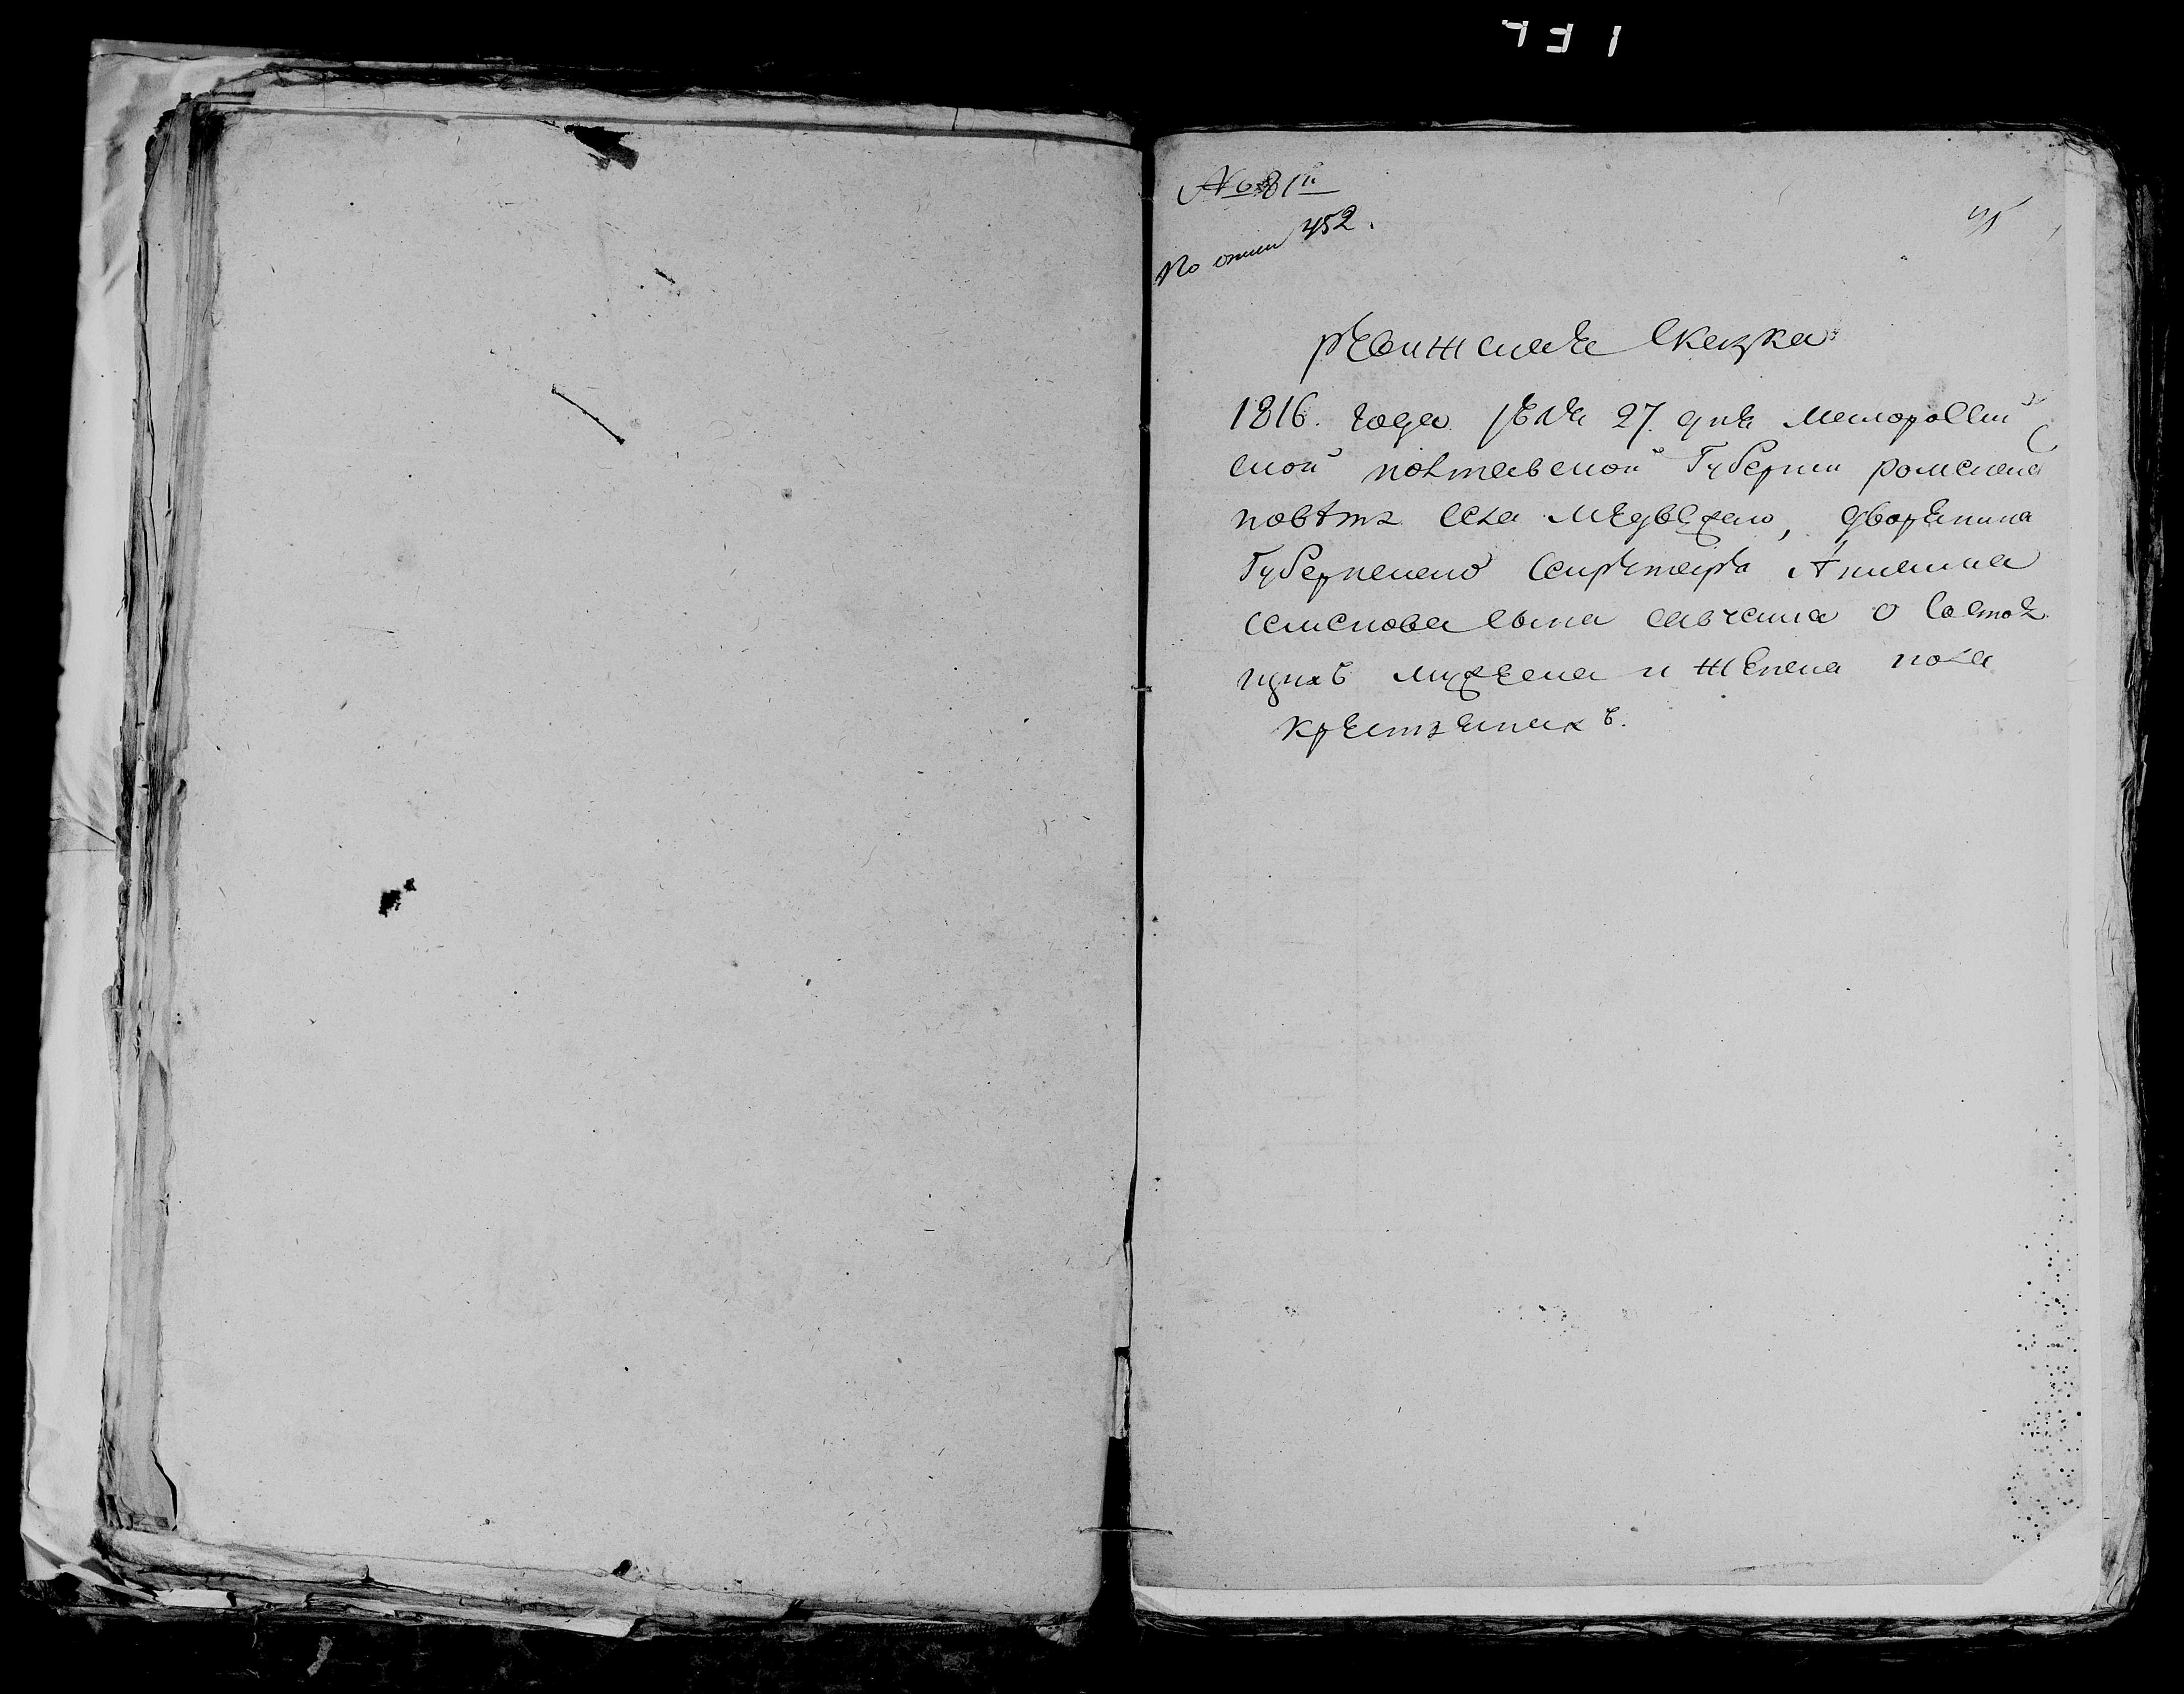 № 81й
По описи 452.
ревижская Сказка
1816. года июля 27. дня малороссий
ской полтавской Губернии роменска
повѣта села медвежего, дворянина
Губернского секретаря Акима
семенова сына савченка о состоя
щихъ мужеска и женска пола
крестьянахъ.